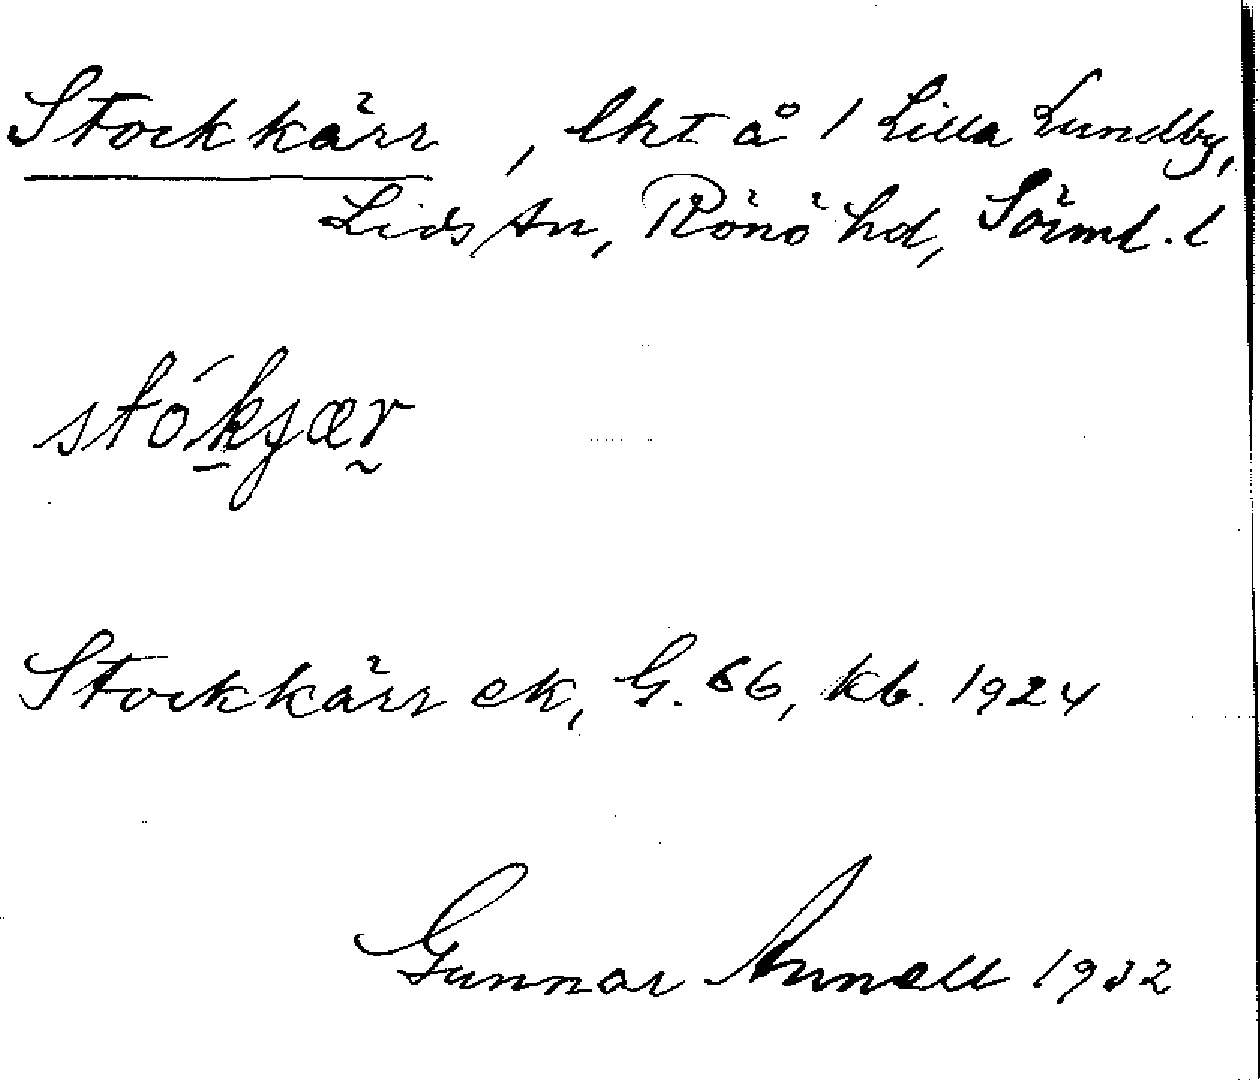 Stockkärr, lht å 1 Lilla Lundby,
Lids sn, Rönö hd, Sörml. l
stókjær
Stockkärr ek, G. 66, kb. 1924
Gunnar Annell 1932